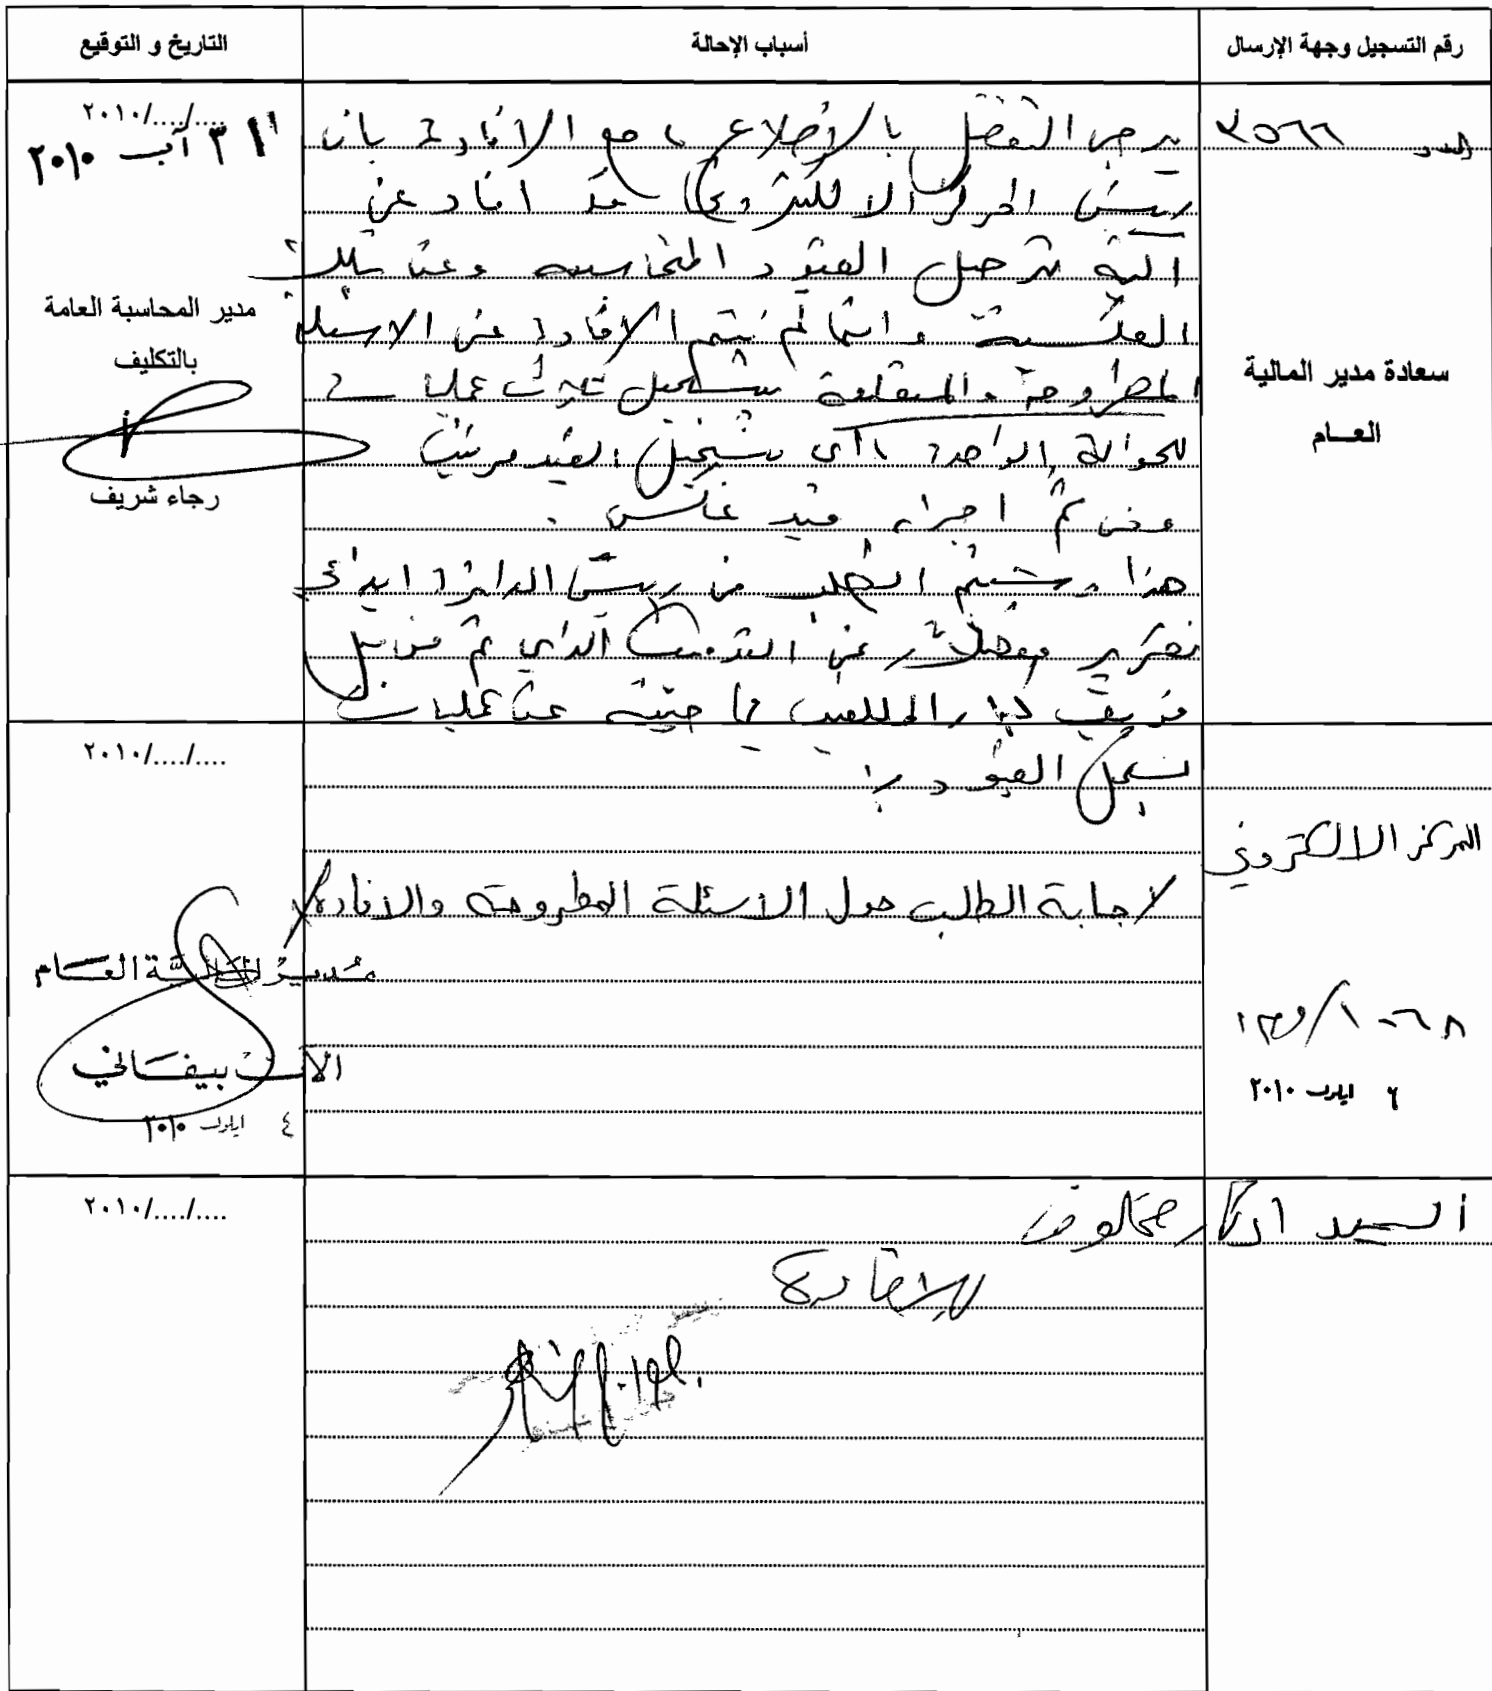 رقم التسجيل وجهة الإرسال
أسباب الإحالة
التاريخ و التوقيع
العدد ٣٥٦٦
سعادة مدير المالية
العـام
يرجى التفضل بالاطلاع، مع الافادة بان
رئيس المركز الالكتروني قد افاد عن
الية ترحيل القيود المحاسبية وعن تلك
العكسية وانما لم يتم الافادة عن الاسئلة
المطروحة والمتعلقة بتسجيل ثلاث عمليات
للحوالة الواحدة، اي تسجيل القيد مرتين
ومن ثم اجراء قيد عاكس.
هذا وسيتم الطلب من رئيس الدائرة ايداع
تقرير مفصل عن التدقيق الذي تم من قبل
فريق
عن عمليات
تسجيل القيود
..../..../٢٠١٠
٣١ آب ٢٠١٠
مدير المحاسبة العامة
بالتكليف
رجاء شريف
المركز الالكتروني
٦ ايلول ٢٠١٠
لاجابة الطلب حول الاسئلة المطروحة والافادة
..../..../٢٠١٠
مدير المالية العام
الان بيفاني
٤ ايلول ٢٠١٠
السيد
للافادة
..../..../٢٠١٠